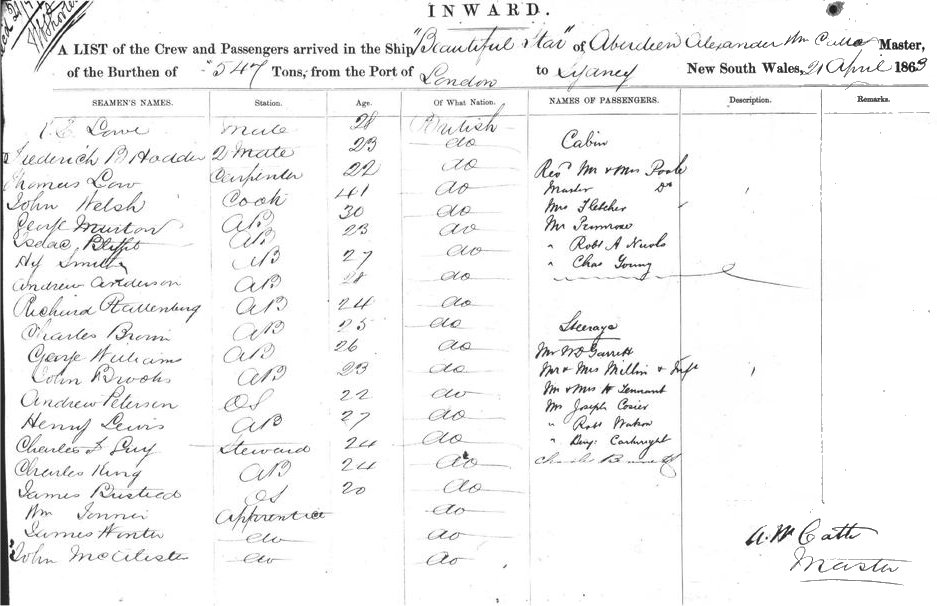 INWARD.
A LIST of the Crew and Passengers arrived in the Ship "Beautiful Star" of Aberdeen Alexander Master,
of the Burthen of 547 Tons, from the Port of London to Sydney New South Wales, 21 April 1863
SEAMEN'S NAMES. Station. Age. Of What Nation. NAMES OF PASSENGERS. Description. Remarks.
Lowe Mate 28 British
Frederick B Hodder 2 Mate 23 do Cabin
Thomas Low Carpenter 22 do Revd Mr & Mrs Poole
John Welsh Cook 41 do Master Do
George AB 30 do Mrs Fletcher
Isdac AB 23 do Mr Primrose
Hy Smith AB 27 do " Robt A
Andrew Anderson AB 28 do " Chas Young
Richard AB 24 do
Charles Brown AB 25 do Steerage
George Williams AB 26 do Mr Wm Garrett
John Brooks AB 23 do Mr & Mrs Millin &
Andrew Peterson OS 22 do Mr & Mrs H Tennant
Henry Lewis AB 27 do Mr Joseph Cosier
Charles F Guy Steward 24 do " Robt Watson
Charles King AB 24 do " Benj. Cartwright
James Bustead OS 20 do Charles
Wm Apprentice do
James Winter do do
John McAlister do do
Master